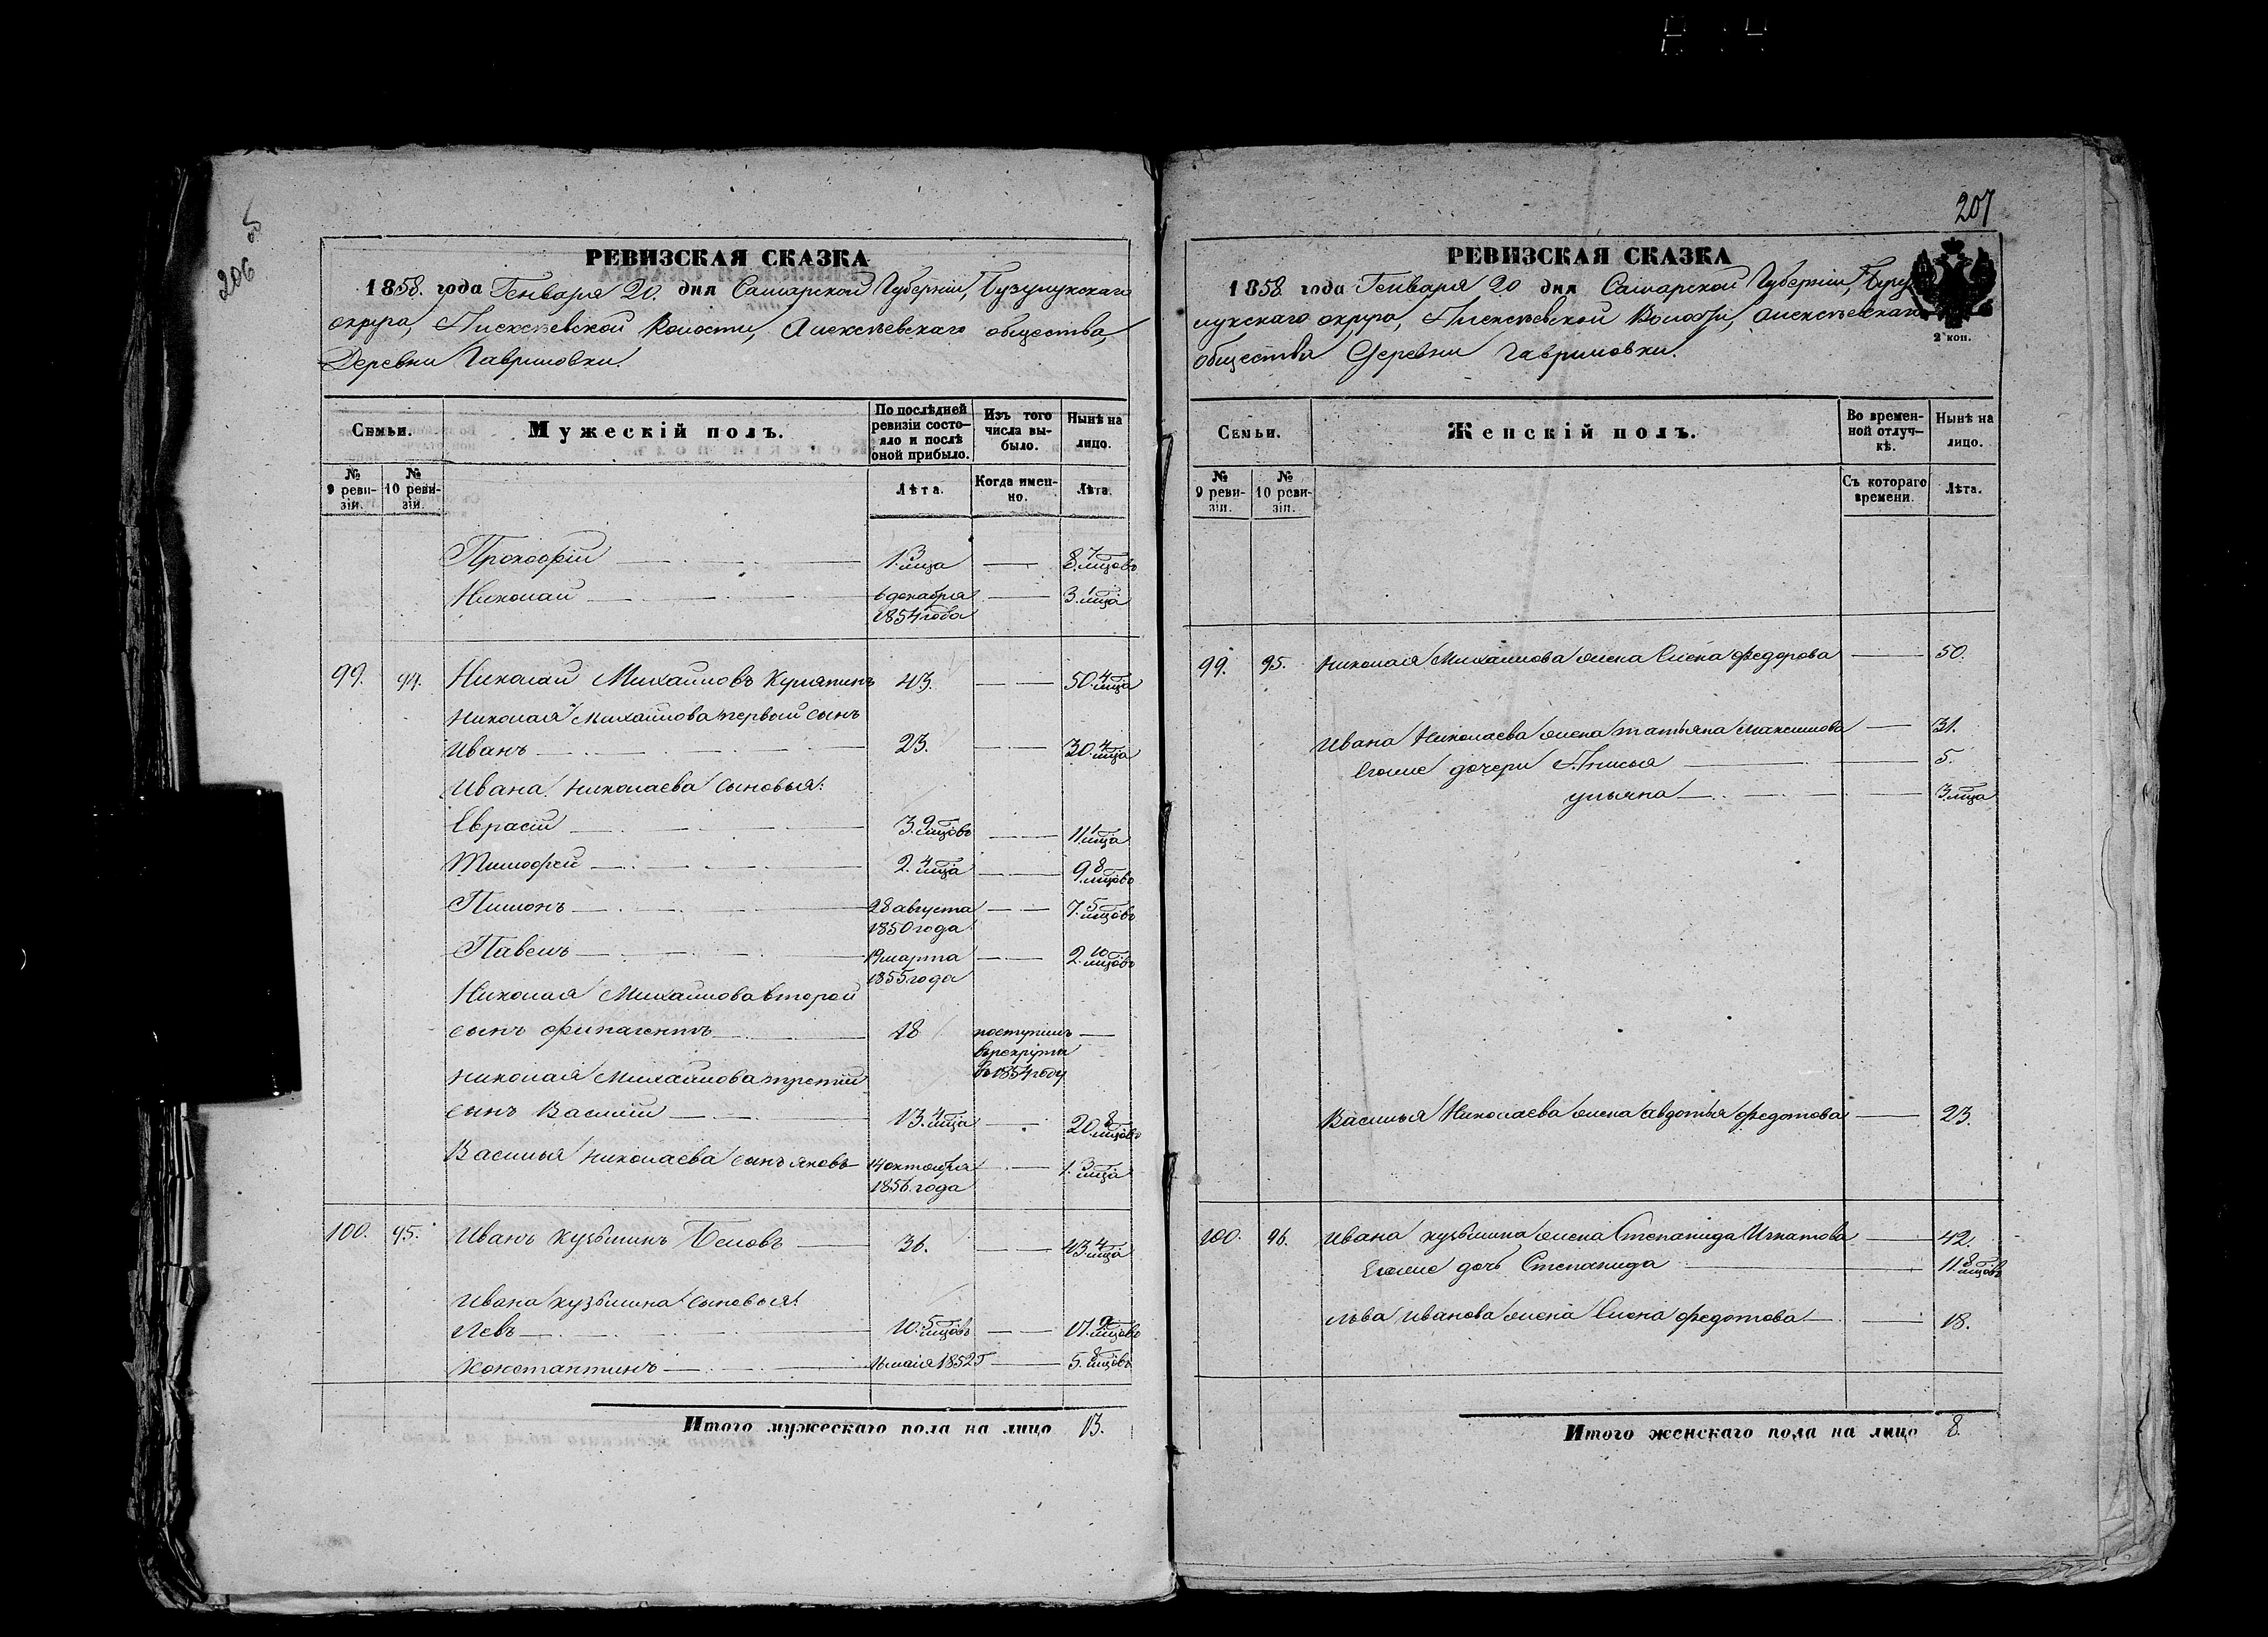 206
РЕВИЗСКАЯ СКАЗКА
1858. года Генваря 20. дня Самарской Губерніи, Бузулукскаго
округа, Алексѣевской Волости, Алексѣевскаго общества,
Деревни Гавриловки.
Семьи.
Мужескій полъ.
По послѣдней ревизіи состояло и послѣ оной прибыло.
Изъ того числа выбыло.
Нынѣ на лицо.
№ 9 ревизіи.
№ 10 ревизіи.
Лѣта.
Когда именно.
Лѣта.
Прокофій 1. 3 мца 8. 7 мцовъ
Николай 6 декабря 3. 1 мца
1854 года
99. 94. Николай Михайловъ 43. 50. 4 мца
Николая Михайлова первый сынъ
Иванъ 23. 30. 4 мца
Ивана Николаева сыновья:
3. 9 мцовъ 11. 1 мца
Тимофей 2. 4 мца 9. 8 мцовъ
28 августа 7. 5 мцовъ
1850 года
Павелъ 19 марта 2. 10 мцовъ
1855 года
Николая Михайлова второй
сынъ 18 поступилъ
въ рекруты
Николая Михайлова третій въ 1854 году
сынъ Василій 13. 4 мца 20. 8 мцовъ
Василья Николаева сынъ Яковъ 14 октября 1. 3 мца
1856. года
100. 95. Иванъ Кузьминъ Беловъ 36. 43. 4 мца
Ивана Кузьмина сыновья:
Левъ 10. 5 мцовъ 17. 9 мцовъ
Константинъ 16 мая 1852 г 5. 8 мцовъ
Итого мужескаго пола на лицо 13.
207
РЕВИЗСКАЯ СКАЗКА
1858 года Генваря 20 дня Самарской Губерніи, Бузу
лукскаго округа, Алексѣевской Волости, Алексѣевскаго
общества Деревни Гавриловки.
2 коп.
Семьи.
Женскій полъ.
Во временной отлучкѣ.
Нынѣ на лицо.
№ 9 ревизіи.
№ 10 ревизіи.
Съ котораго времени.
Лѣта.
99. 95. Николая Михайлова жена Елена Федорова 50.
Ивана Николаева жена Татьяна Максимова 31.
Егоже дочери Анисья 5.
Ульяна 3. мца
Василья Николаева жена Авдотья Федотова 23.
100. 96. Ивана Кузьмина жена Степанида Игнатова 42.
Егоже дочь Степанида 11. 8 мцовъ
Льва Иванова жена Елена Федотова 18.
Итого женскаго пола на лицо 8.